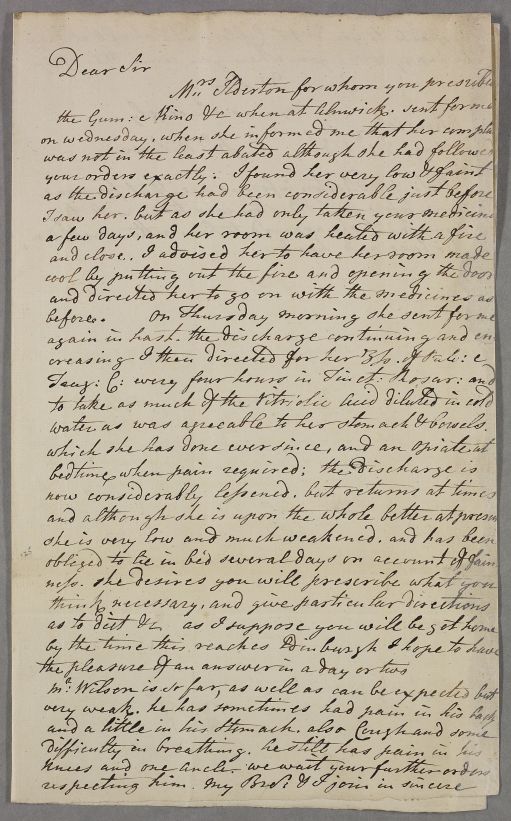 Dear Sir
Mrs Ilderton for whom you prescribed
the Gum: e Kino &c when at Alnwick. sent for me
on wednesday, when she informed me that her compla
was not in the least abated although she had followed
your orders exactly. I found her very low & faint
as the discharge had been considerable just before
I saw her. but as she had only taken your medicine
a few days, and her room was heated with a fire
and close. I advised her to have her room made
cool by putting out the fire and opening the door
and directed her to go on with the medicines as
before. on Thursday morning she sent for me
again in hast. the discharge continuing and en
creasing I then directed for her of Pulv: e
Sang: C: every four hours in Tinct. Rosar: and
to take as much of the Vitriolic Acid diluted in cold
water as was agreeable to her stomach & bowels.
which she has done ever since, and an opiate at
bedtime when pain required; the discharge is
now considerably lessened. but returns at times
and although she is upon the whole better at presen
she is very low and much weakened. and has been
obliged to lie in bed several days on account of fain
ness. she desires you will prescribe what you
think necessary, and give particular directions
as to diet &c. as I suppose you will be got home
by the time this reaches Edinburgh I hope to have
the pleasure of an answer in a day or two
Mr. Wilson is so far, as well as can be expected but
very weak. he has sometimes had pain in his back
and a little in his stomach. also Cough and some
difficulty in breathing. he still has pain in his
knees and one ancle. we wait your further orders
respecting him. my Bror: & I join in sincere